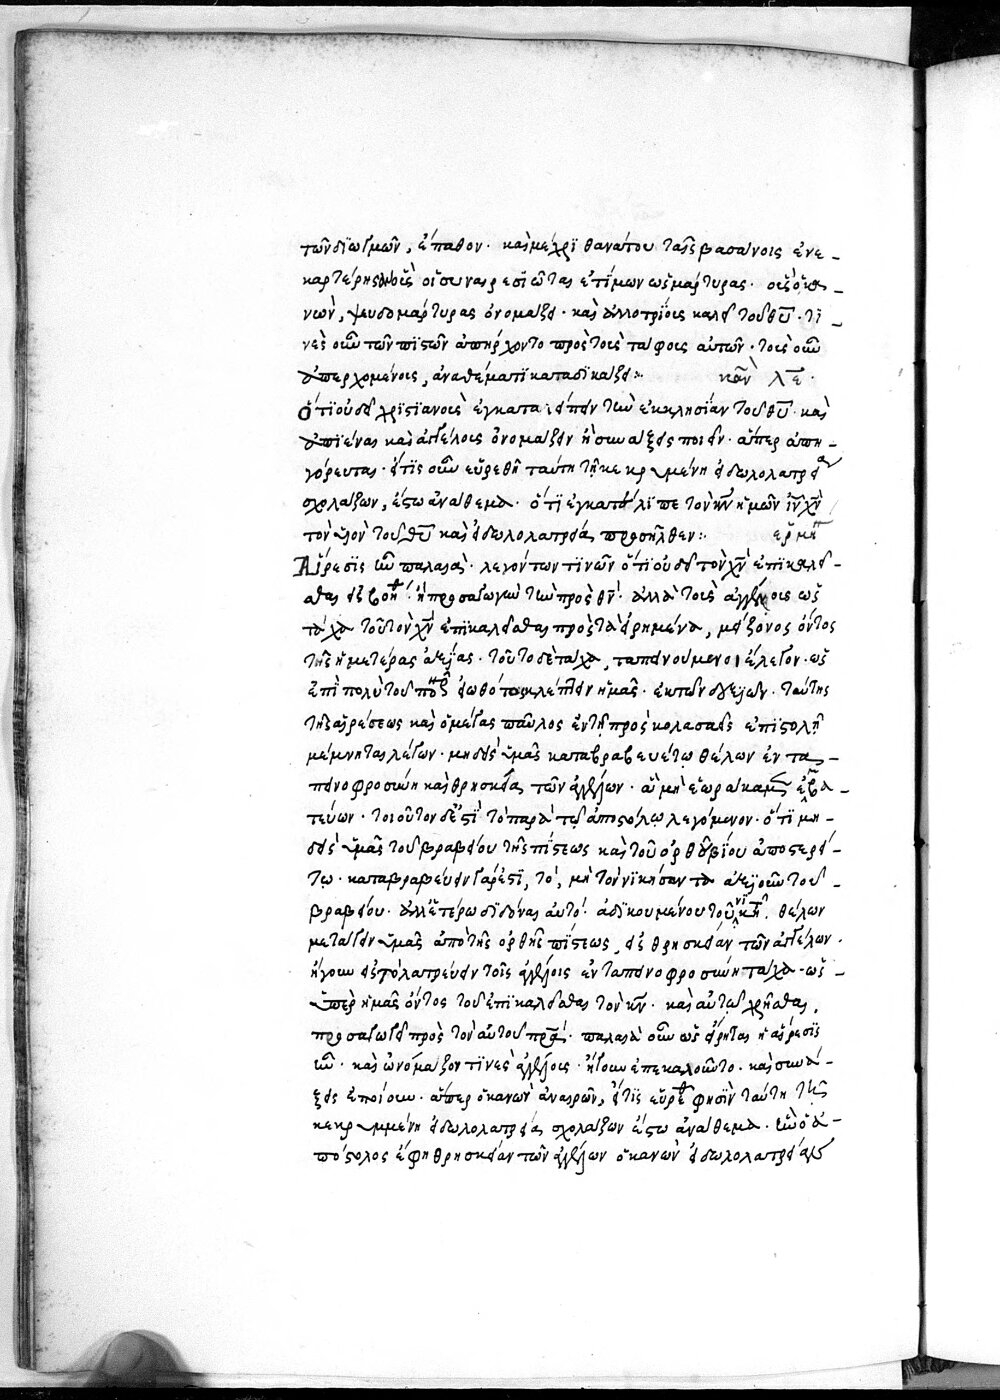 τῶν διωγμῶν, ἔπαθον· καὶ μέχρι θανάτου ταῖς βασάνοις ἐνε-
καρτέρησαν οὓς οἱ συναιρεσιῶται ἐτίμων ὡς μάρτυρας· οὓς ὁ κα-
νὼν, ψευδομάρτυρας ὀνομάζει· καὶ ἀλλοτρίους καλεῖ τοῦ θῦ· τι-
νὲς οὖν τῶν πιστῶν ἀπήρχοντο πρὸς τοὺς τάφους αὐτῶν· τοὺς οὖν
ἀπερχομένους, ἀναθέματι καταδικάζει:· κανὼν λε·
Ὅτι οὐ δεῖ χριστιανοὺς ἐγκαταλείπειν τὴν ἐκκλησίαν τοῦ θῦ· καὶ
ἀπιέναι καὶ ἀγγέλους ὀνομάζειν ἢ συνάξεις ποιεῖν· ἅπερ ἀπη-
γόρευται· εἴ τις οὖν εὑρεθῇ ταύτῃ τῇ κεκρυμμένῃ εἰδωλολατρεία
σχολάζων, ἔστω ἀνάθεμα· ὅτι ἐγκατέλιπε τὸν κν ἡμῶν ιν χν
τὸν υἱὸν τοῦ θῦ καὶ εἰδωλολατρείᾳ προσῆλθεν:· ερμη
Αἵρεσις ἦν παλαιὰ· λεγόντων τινῶν ὅτι οὐ δεῖ τὸν χν ἐπικαλεῖ-
σθαι εἰς βοήθ ἢ προσαγωγὴν τὴν πρὸς θν· ἀλλὰ τοὺς ἀγγέλους ὡς
τάχα τοῦ τὸν χν ἐπικαλεῖσθαι πρὸς τὰ εἰρημένα, μείζονος ὄντος
τῆς ἡμετέρας ἀξίας· τοῦτο δὲ τάχα, ταπεινούμενοι ἔλεγον· ὡς
ἐπὶ πολὺ τοῦ πονηροῦ εἰωθότος κλέπτειν ἡμᾶς· ἐκ τῶν δεξιῶν· ταύτης
τῆς αἱρέσεως καὶ ὁ μέγας παῦλος ἐν τῇ πρὸς κολασαεῖς ἐπιστολῇ
μέμνηται λέγων· μηδεὶς ὑμᾶς καταβραβευέτω θέλων ἐν τα-
πεινοφροσύνῃ καὶ θρησκείᾳ τῶν ἀγγέλων· ἃ μὴ ἑώρακαμεν ἐμβα-
τεύων· τοιοῦτον δέ ἐστι τὸ παρὰ τῷ ἀποστόλῳ λεγόμενον· ὅτι μη-
δεὶς ὑμᾶς τοῦ βραβείου τῆς πίστεως καὶ τοῦ ὀρθοῦ βίου ἀποστερεί-
τω· καταβραβεύειν γάρ ἐστι, τὸ, μὴ τὸν νικήσαντα ἀξιοῦν τοῦ
βραβείου· ἀλλ' ἑτέρῳ διδόναι αὐτό· ἀδικουμένου τοῦ νικητ. θέλων
μετάγειν ὑμᾶς ἀπὸ τῆς ὀρθῆς πίστεως, εἰς θρησκείαν τῶν ἀγγέλων·
ἤγουν εἰς τὸ λατρεύειν τοῖς ἀγγέλοις ἐν ταπεινοφροσύνῃ τάχα· ὡς
ὑπὲρ ἡμᾶς ὄντος τοῦ ἐπικαλεῖσθαι τὸν κν· καὶ αὐτῷ χρῆσθαι,
προσαγωγεῖ πρὸς τὸν αὐτοῦ πρα· παλαιὰ οὖν ὡς εἴρηται ἡ αἵρεσις
ἦν· καὶ ὠνόμαζον τινὲς ἀγγέλους· ἤγουν ἐπεκαλοῦντο· καὶ συνά-
ξεις ἐποίουν· ἅπερ ὁ κανὼν ἀναιρῶν, εἴ τις εὑρεθῇ φησὶν ταύτῃ τῇ
κεκρυμμένῃ εἰδωλολατρείᾳ σχολάζων ἔστω ἀνάθεμα· ἣν ὁ ἀ-
πόστολος ἔφη θρησκείαν τῶν ἀγγέλων ὁ κανὼν εἰδωλολατρείαν